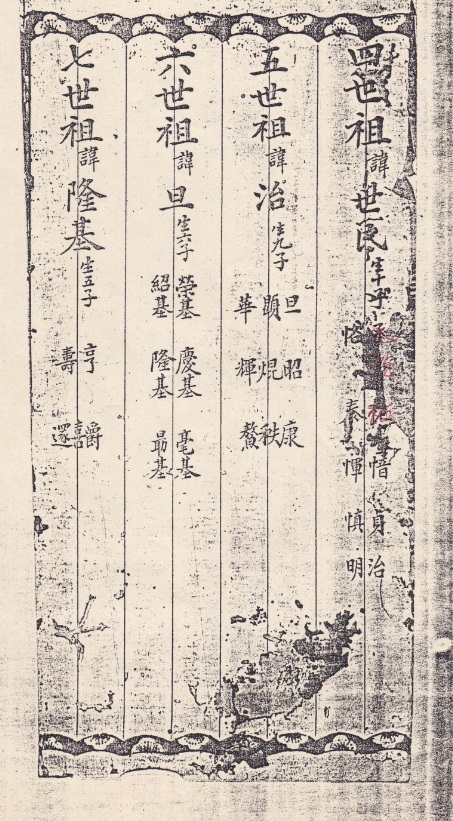 四世祖諱世民生十
祐愔貞治
恪泰惲慎明
五世祖諱治生九子
旦昭康
顕焜秩
華輝鰲
六世祖諱旦生六子
榮基慶基毫基
紹基隆基勗基
七世祖諱隆基生五子
亨
壽